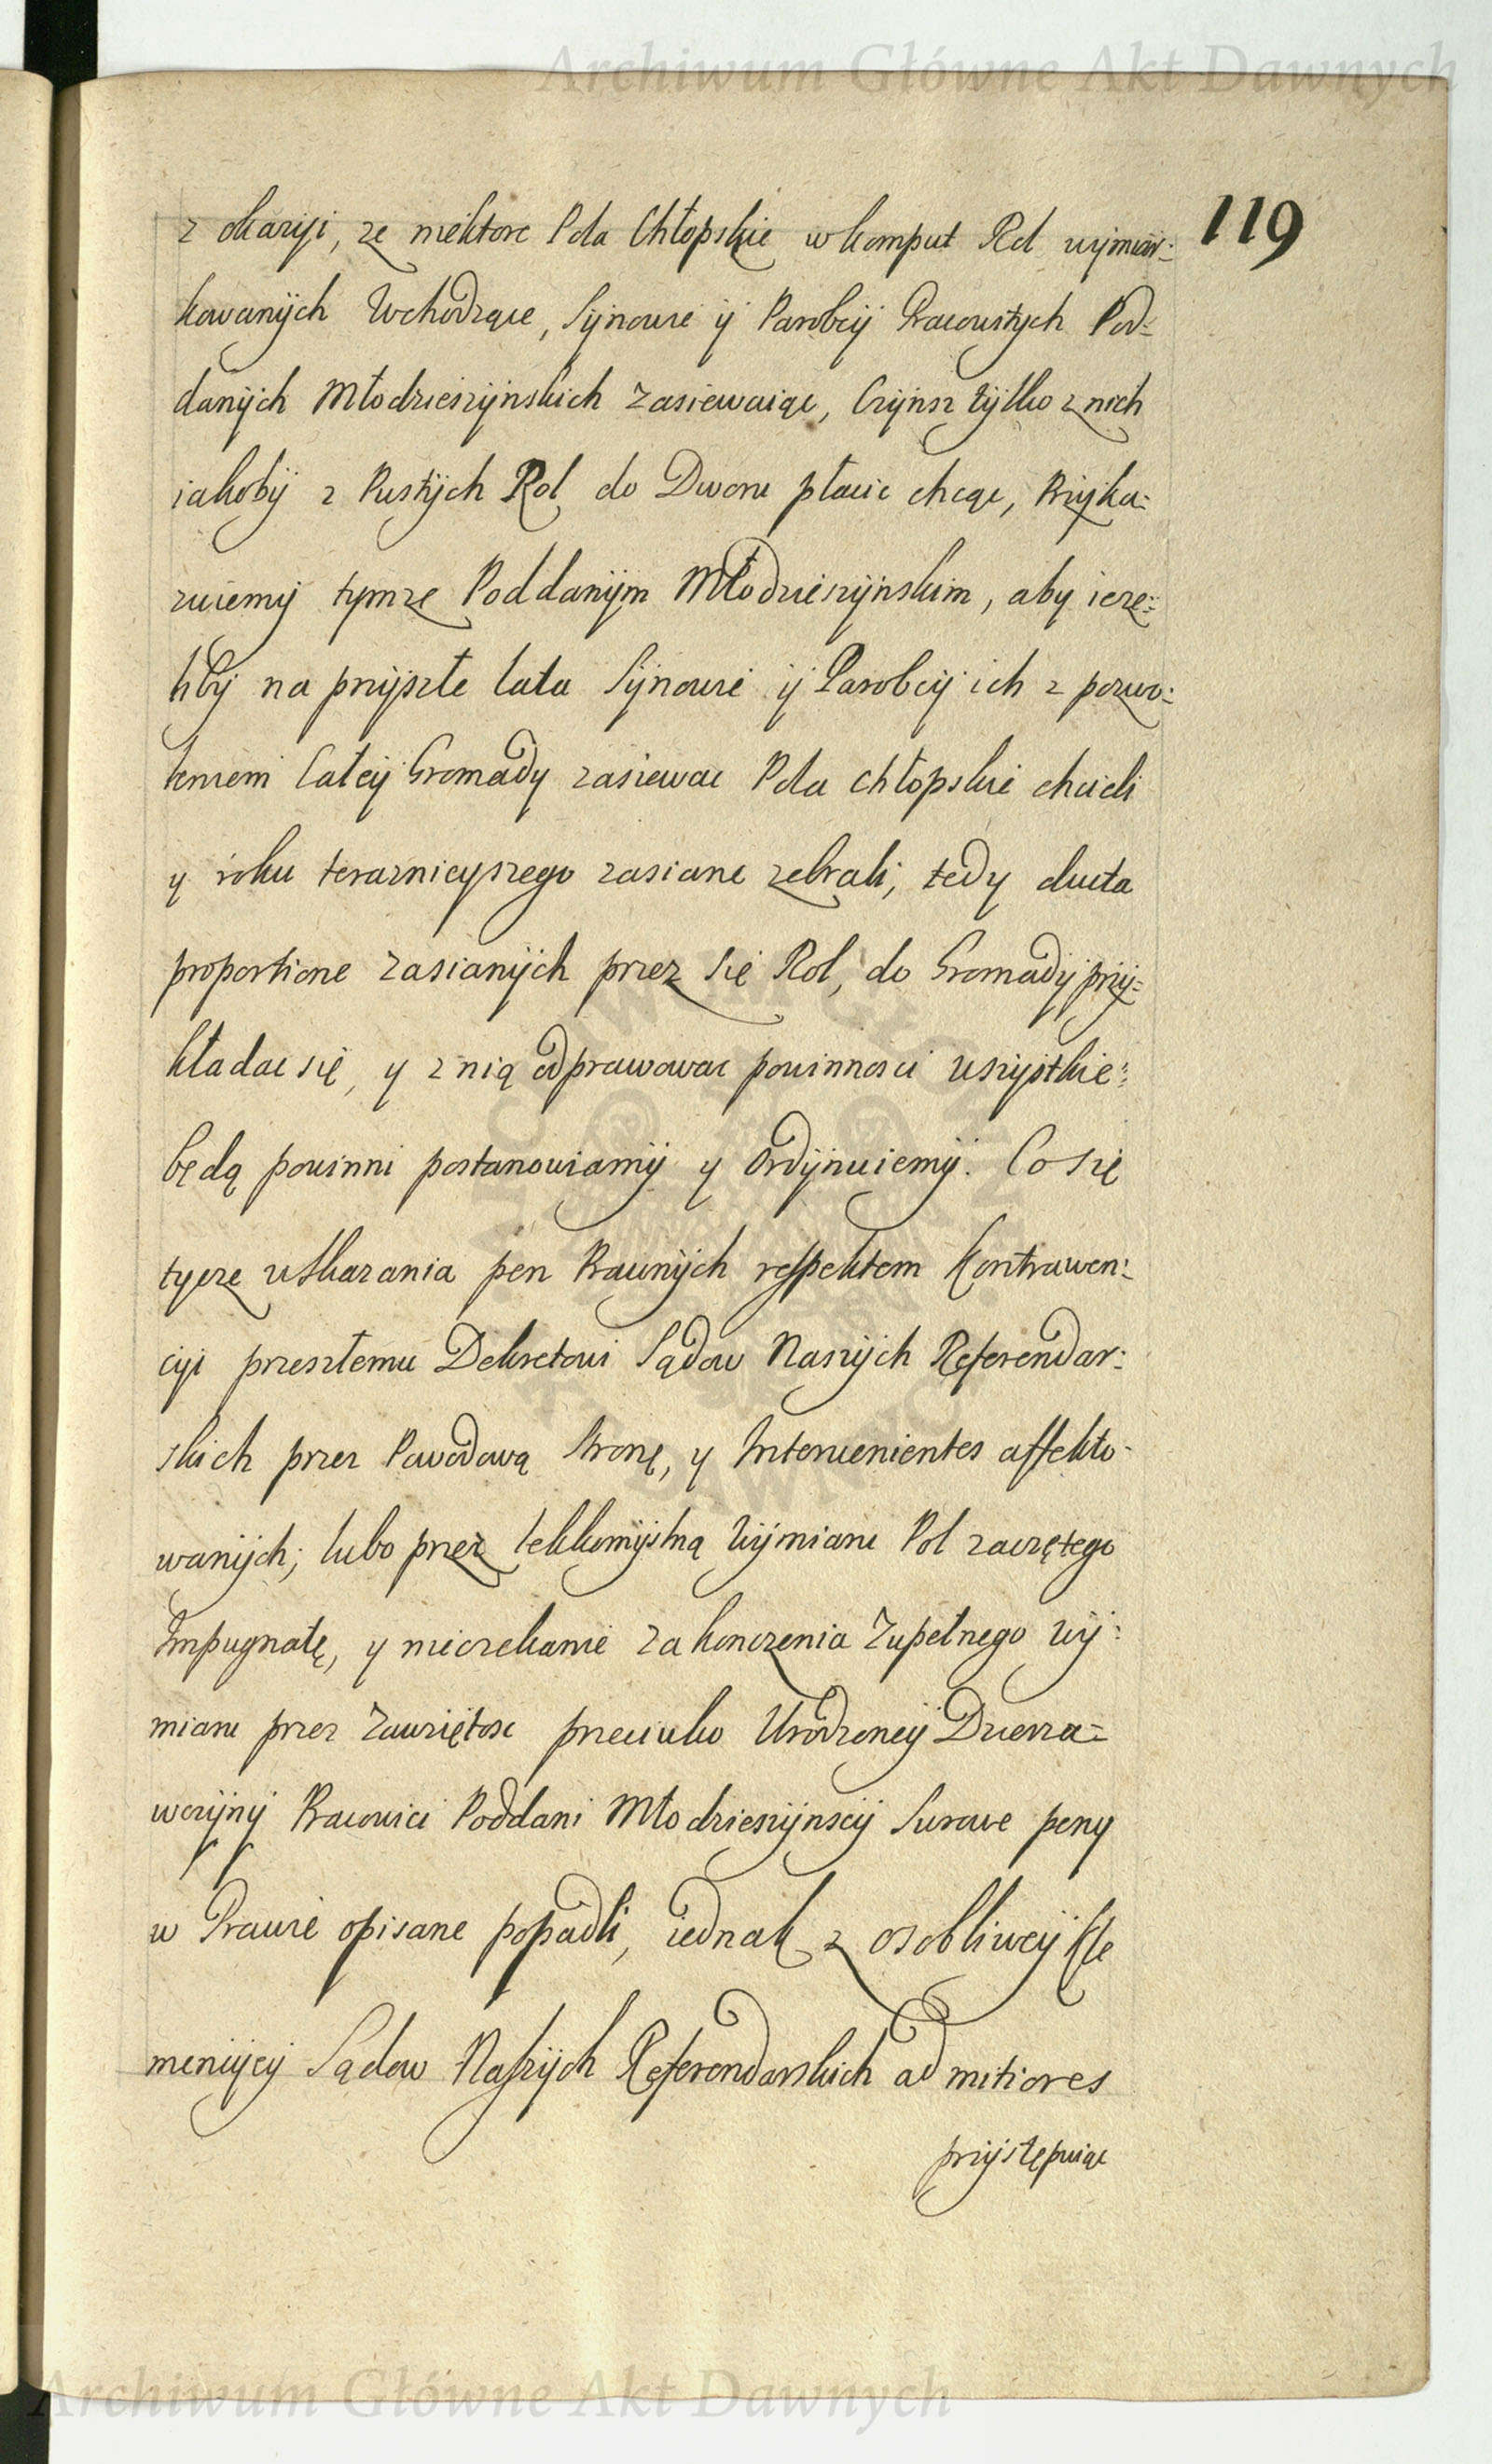 Archiwum Główne Akt Dawnych
119
z okazyi, ze niektore Pola Chłopskie w komput Rol wymiar:
kowanÿch Wchodzące, Sÿnowie ÿ Parobcÿ Pracowitych Pod:
danÿch Młodzieszÿnskich zasiewaiąc, Czÿnsz tÿlko z nich
iakobÿ z Pustÿch Rol do Dworu płacic chcąc, Przÿka:
zuiemÿ tymze Poddanÿm Młodzieszÿnskim, aby ieze:
libÿ na przÿszłe lata Sÿnowie ÿ Parobcÿ ich z pozwo:
leniem Całeÿ Gromady zasiewac Pola chłopskie chcieli
y roku teraznieyszego zasiane zebrali, tedy ducta
proportione zasianÿch przez się Rol, do Gromadÿ przÿ:
kładac się, y z nią odprawowac powinnosci wszÿstkie:
będą powinni postanowiamÿ y Ordÿnuiemÿ. Co się
tycze wskazania pen Prawnÿch respektem Kontrawen:
cyi przeszłemu Dekretowi Sądow Naszÿch Referendar:
skich przez Powodową Stronę, y Intervenientes affekto:
wanÿch; lubo przez lekkomÿslną Wÿmiaru Pol zaczętego
Impugnatę, y nieczekanie zakonczenia Zupełnego Wÿ:
miaru przez Zawziętosc przeciwko Urodzoneÿ Dzierza:
wczÿnÿ Pracowici Poddani Młodzieszÿnscÿ Surowe peny
w Prawie opisane popadli, iednak z osobliweÿ Kle
mencÿeÿ Sądow Naszÿch Referendarskich ad mitiores
przÿstępuiąc
Archiwum Główne Akt Dawnych